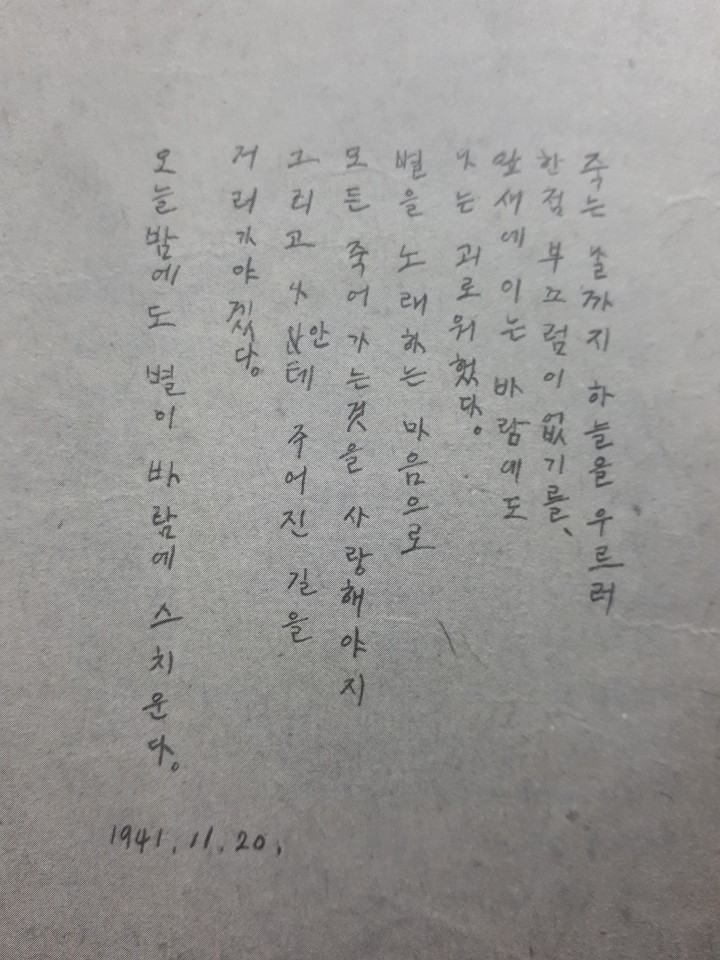 죽는 날까지 하늘을 우르러
한점 부끄럼이 없기를、
잎새에 이는 바람에도
나는 괴로워했다。
별을 노래하는 마음으로
모든 죽어가는것을 사랑해야지
그리고 나안테 주어진 길을
거러가야겠다。
오늘밤에도 별이 바람에 스치운다。
1941.11.20.